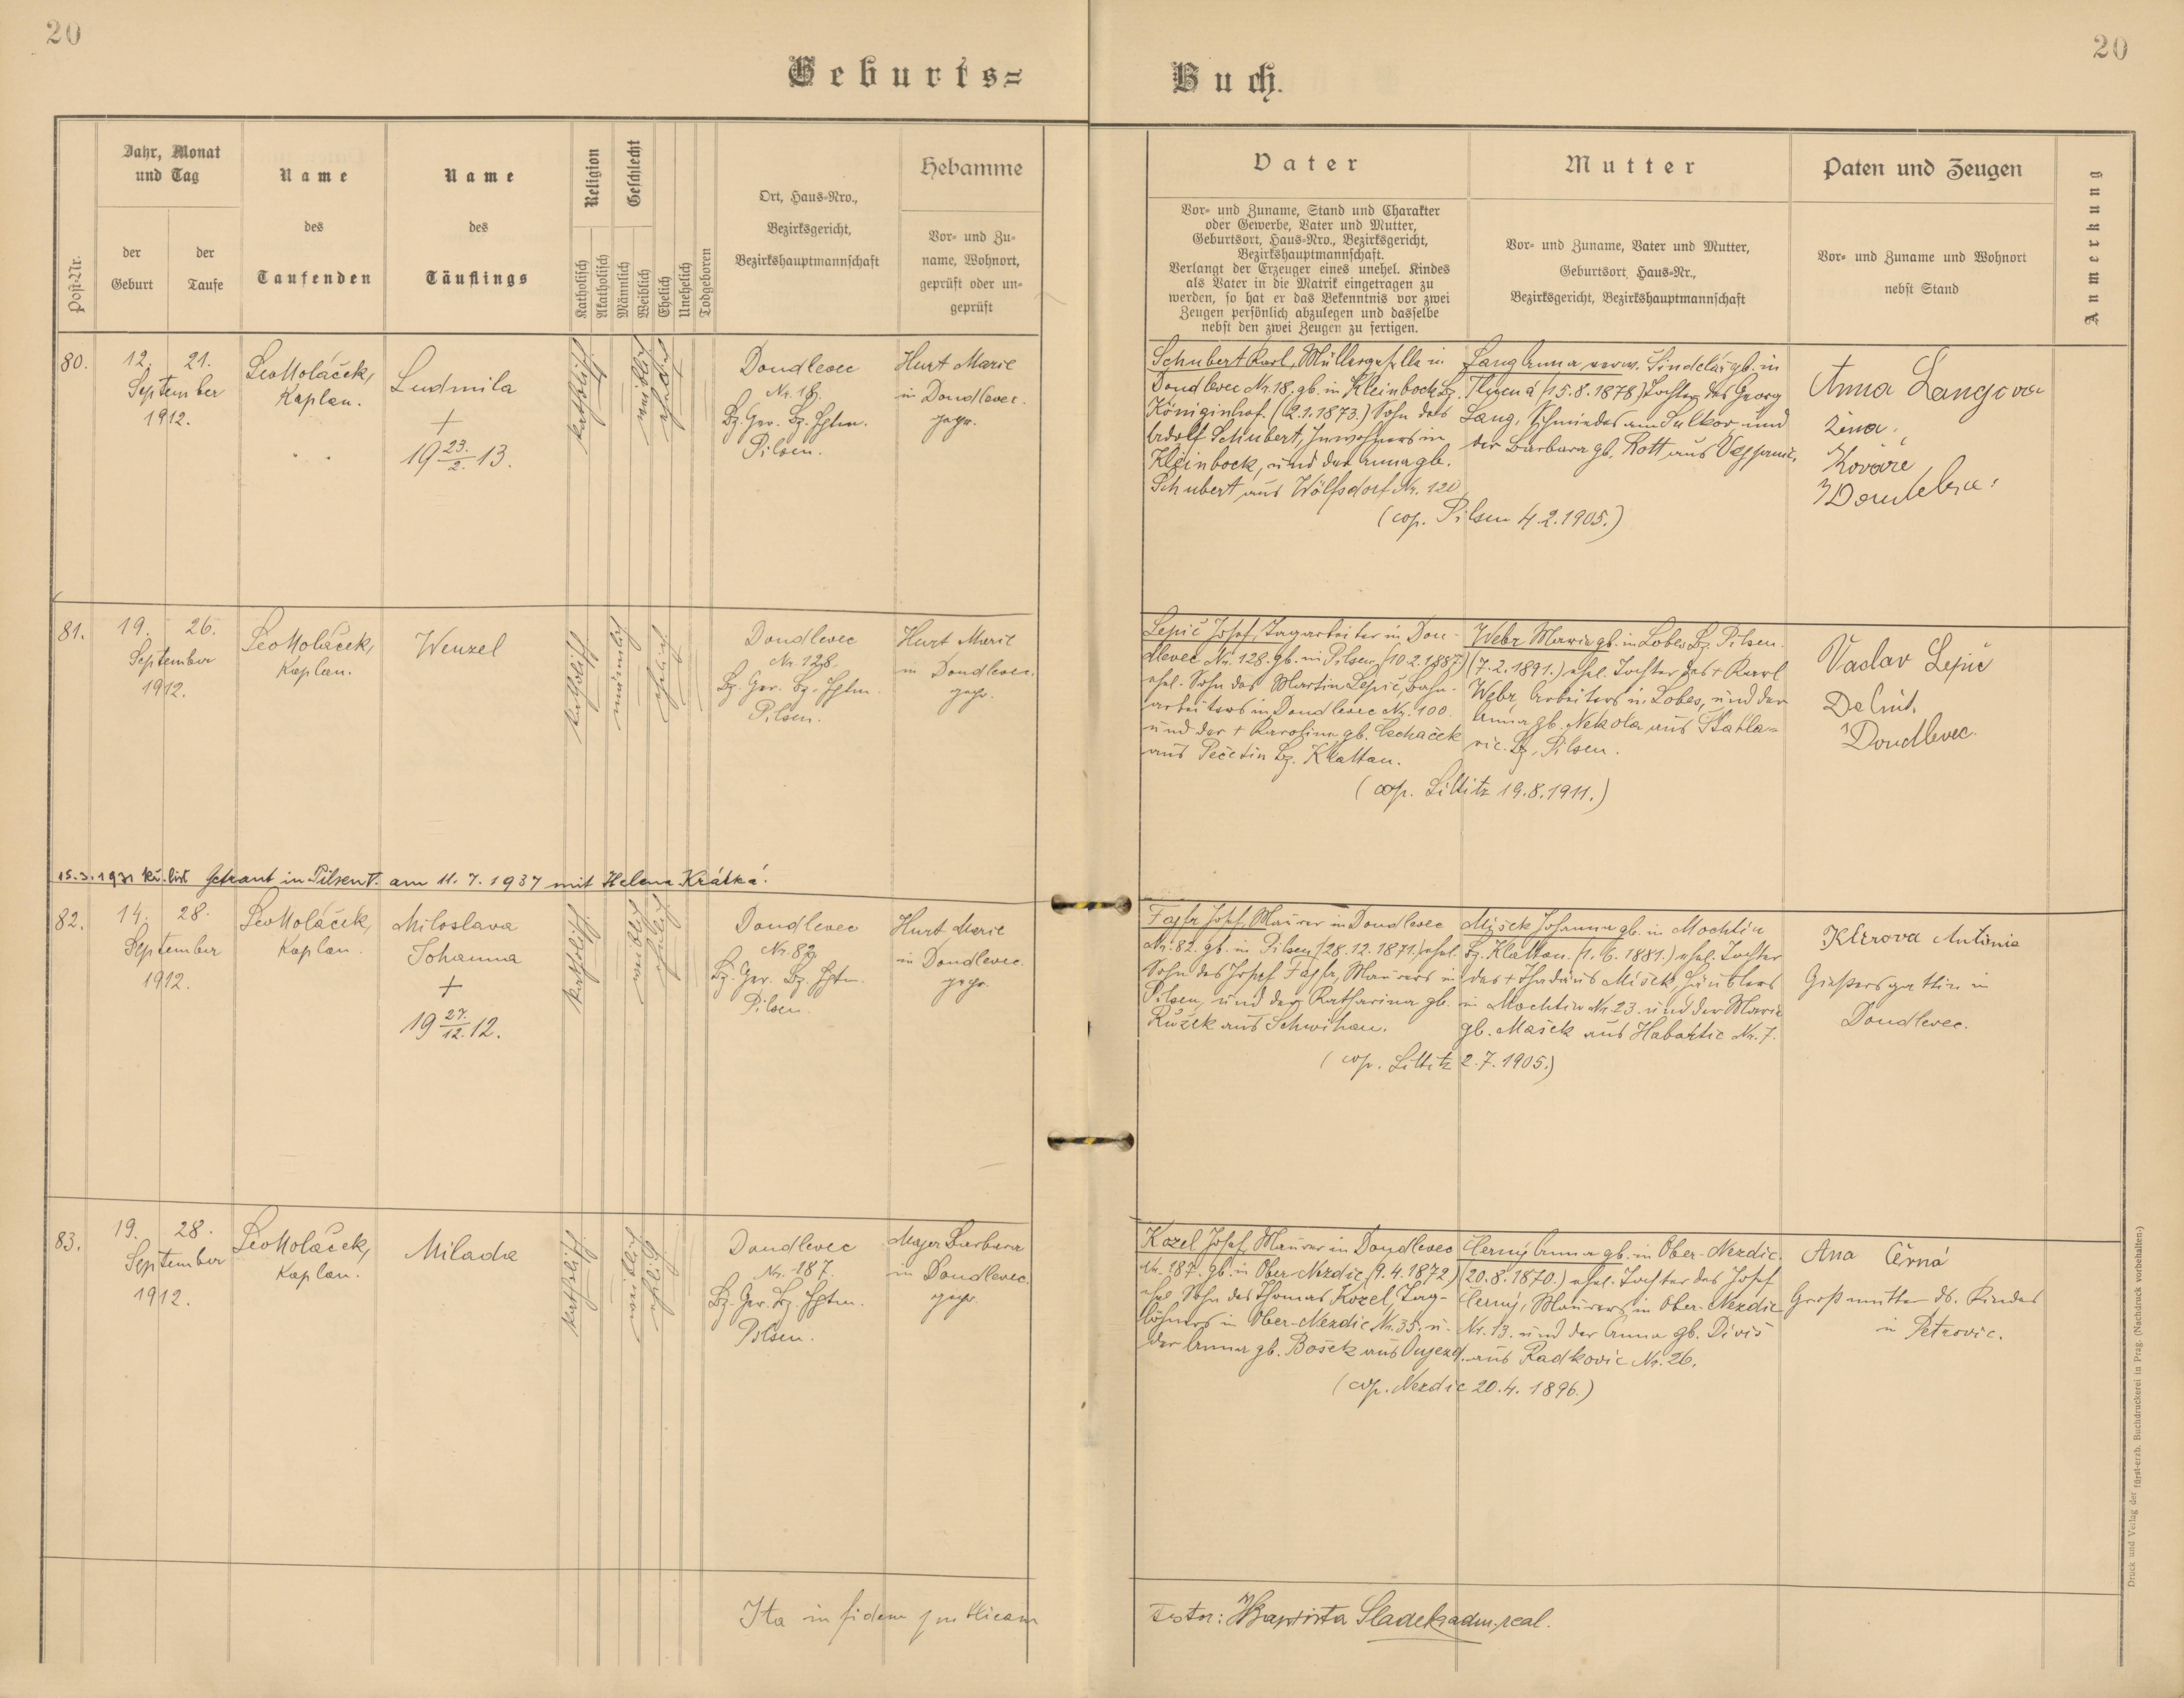 20
20
Geburts=
Buch.
Post-Nr.
Jahr, Monat
und Tag
der
Geburt
der
Taufe
Name
des
Taufenden
Name
des
Täuflings
Religion
Katholisch
Akatholisch
Geschlecht
Männlich
Weiblich
Ehelich
Unehelich
Todgeboren
Ort, Haus-Nro.,
Bezirksgericht,
Bezirkshauptmannschaft
Hebamme
Vor- und Zu-
name, Wohnort,
geprüft oder un-
geprüft
Vater
Vor- und Zuname, Stand und Charakter
oder Gewerbe, Vater und Mutter,
Geburtsort, Haus-Nro., Bezirksgericht,
Bezirkshauptmannschaft.
Verlangt der Erzeuger eines unehel. Kindes
als Vater in die Matrik eingetragen zu
werden, so hat er das Bekenntnis vor zwei
Zeugen persönlich abzulegen und dasselbe
nebst den zwei Zeugen zu fertigen.
Mutter
Vor- und Zuname, Vater und Mutter,
Geburtsort, Haus-Nr.,
Bezirksgericht, Bezirkshauptmannschaft
Paten und Zeugen
Vor- und Zuname und Wohnort
nebst Stand
Anmerkung
80.
12. 21.
September
1912.
Leo Holáček,
Kaplan.
Ludmila
+
19 23./2. 13.
katholisch
weiblich
ehelich
Doudlevec
Nr. 18.
Bz. Ger. Bz. Hptm.
Pilsen.
Hurt Marie
in Doudlevec.
gepr.
Schubert Karl, Müllergeselle in
Doudlevec Nr. 18, gb. in Kleinbock Bz.
Königinhof. (2.1.1873.) Sohn des
Adolf Schubert, Inwohners in
Kleinbock, und der Anna gb.
Schubert aus Wölfsdorf Nr. 120
Lang Anna, verw. Sindelář gb. in
(15.8.1878) Tochter des Georg
Lang, Schmiedes am Sulkov und
der Barbara gb. Rott aus
(cop. Pilsen 4.2.1905.)
Anna Langova
žena
Kováře
81.
19. 26.
September
1912.
Leo Holáček,
Kaplan.
Wenzel
katholisch
männlich
ehelich
Doudlevec
Nr. 128.
Bz. Ger. Bz. Hptm.
Pilsen.
Hurt Marie
in Doudlevec.
gepr.
Lepič Josef, Tagarbeiter in Dou-
dlevec Nr. 128. gb. in Pilsen, (10.2.1887.)
ehel. Sohn des Martin Lepič, Bahn-
arbeiters in Doudlevec Nr. 100.
und der + Karolina gb.
aus Pečetin Bz. Klattau.
Webr Marie gb. in Lobes Bz. Pilsen.
(7.2.1891.) ehel. Tochter des + Karl
Webr, Arbeiters in Lobes, und der
Anna gb. Nekola aus Štahla-
vic. Bz. Pilsen.
(cop. Littitz 19.8.1911.)
Vaclav Lepič
Doudlevec.
15.3.1931 Getraut in Pilsen T. am 11.7.1937 mit Helena Krátká.
82.
14. 28.
September
1912.
Leo Holáček,
Kaplan.
Miloslava
Johanna
+
19 27./12. 12.
katholisch
weiblich
ehelich
Doudlevec
Nr. 82.
Bz. Ger. Bz. Hptm.
Pilsen.
Hurt Marie
in Doudlevec.
gepr.
Fajfr Josef, Maurer in Doudlevec
Nr. 82. gb. in Pilsen, (28.12.1871.) ehel.
Sohn des Josef Fajfr, Maurers in
Pilsen, und der Katharina gb.
Růžek aus Schwihau.
Mišek Johanna gb. in Mochtin
Bz. Klattau. (1.6.1881.) ehel. Tochter
des + Thadäus Mišek, Häuslers
in Mochtin Nr. 23. und der Marie
gb. Mašek aus Habartic Nr. 7.
(cop. Littitz 2.7.1905.)
Klírova Antonie
Giessersgattin in
Doudlevec.
83.
19. 28.
September
1912.
Leo Holáček,
Kaplan.
Milada
katholisch
weiblich
ehelich
Doudlevec
Nr. 187.
Bz. Ger. Bz. Hptm.
Pilsen.
Majer Barbara
in Doudlevec.
gepr.
Kozel Josef, Maurer in Doudlevec
Nr. 187. gb. in Ober-Nezdic, (9.4.1872.)
ehel. Sohn des Thomas Kozel, Tag-
löhners in Ober-Nezdic Nr. 35. u.
der Anna gb. Bošek aus Oujezd.
Černý Anna gb. in Ober-Nezdic.
(20.8.1870.) ehel. Tochter des Josef
Černý, Maurers in Ober-Nezdic
Nr. 13. und der Anna gb. Diviš
aus Radkovic Nr. 26.
(cop. Nezdic 20.4.1896.)
Ana Černá
Großmutter ds. Kindes
in Petrovic.
Ita in fidem publicam
Testor: Baptista Sladek adm. real.
Druck und Verlag der fürst-erzb. Buchdruckerei in Prag. (Nachdruck vorbehalten.)